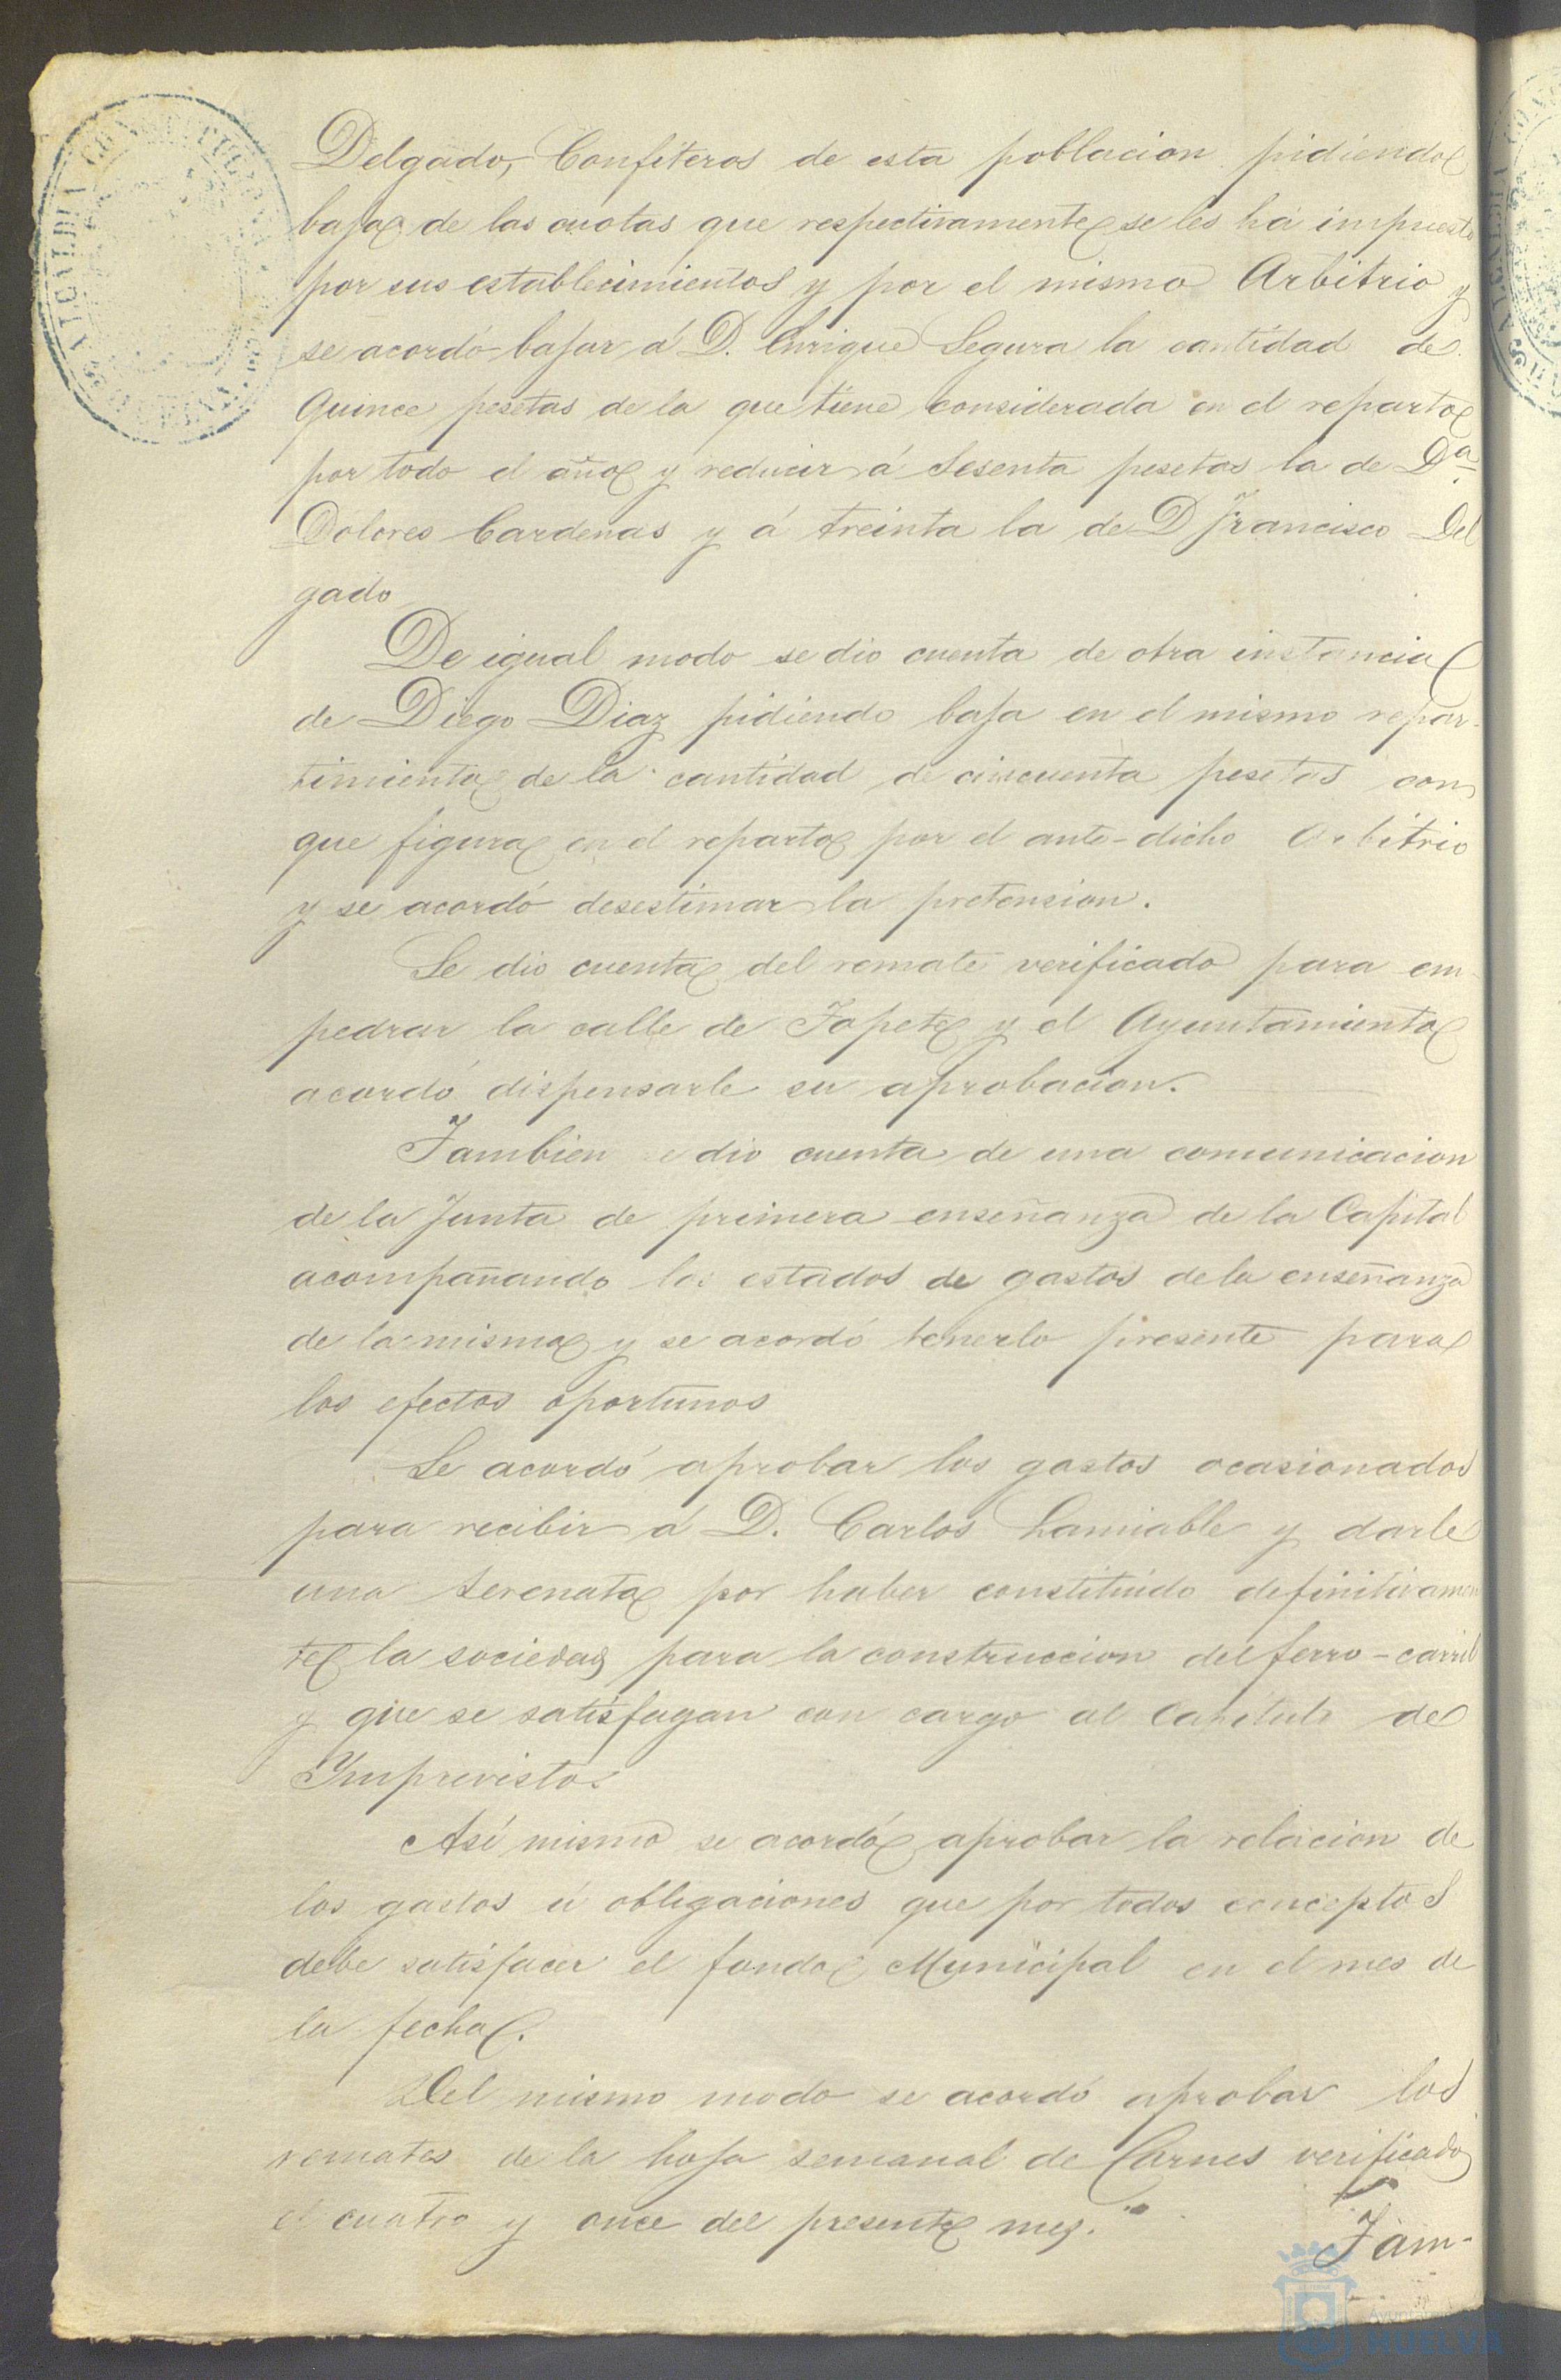 Delgado, Confiteros de esta poblacion pidiendo
baja de las cuotas que respectivamente se les há impuesto
por sus establecimientos y por el mismo Arbitrio y
se acordó bajar á D. Enrique Segura la cantidad de
quince pesetas de la que tiene considerada en el reparto
por todo el año y reducir á Sesenta pesetas la de Dª
Dolores Cardenas y á treinta la de D Francisco Del
gado
De igual modo se dio cuenta de otra instancia
de Diego Diaz pidiendo baja en el mismo repar-
timiento de la cantidad de cincuenta pesetas con
que figura en el reparto por el ante-dicho Arbitrio
y se acordó desestimar la pretension.
Se dio cuenta del remate verificado para em-
pedrar la calle de Tapete y el Ayuntamiento
acordó dispensarle su aprobacion.
Tambien se dio cuenta de una comunicacion
de la Junta de primera enseñanza de la Capital
acompañando los estados de gastos de la enseñanza
de la misma y se acordó tenerlo presente para
los efectos oportunos
Se acordó aprobar los gastos ocasionados
para recibir á D. Carlos Lamiable y darle
una Serenata por haber constituido definitivamen
te la sociedad para la construccion del ferro-carril
y que se satisfagan con cargo al Capitulo de
Imprevistos
Así mismo se acordó aprobar la relacion de
los gastos ú obligaciones que por todos conceptos
debe satisfacer el fondo Municipal en el mes de
la fecha.
Del mismo modo se acordó aprobar los
remates de la hoja semanal de Carnes verificados
el cuatro y once del presente mes.
Tam-
ALCALDIA CONSTITUCIONAL
HUELVA